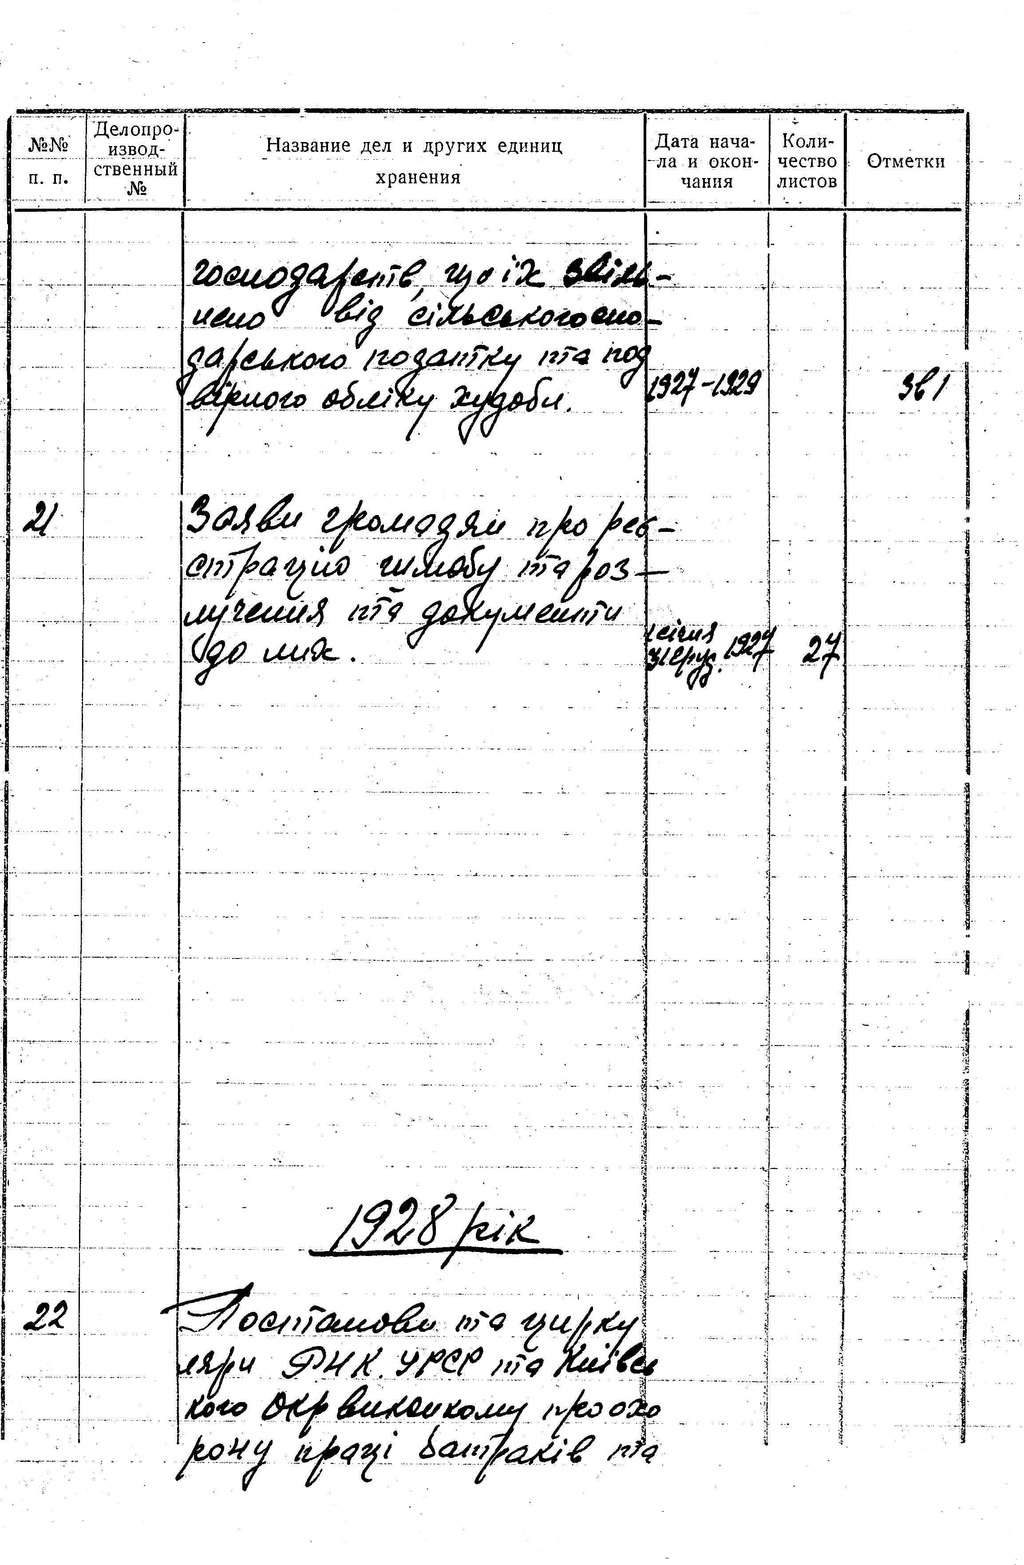 №№ п. п.
Делопро-
извод-
ственный
№
Название дел и других единиц
хранения
Дата нача-
ла и окон-
чания
Коли-
чество
листов
Отметки
господарств, що їх звіль-
нено від сільськогоспо-
дарського податку та под
вірного обліку худоби.
1927-1929
21
Заяви громадян про реє-
страцію шлюбу та роз-
лучення та документи
до них.
1 січня
31 груд. 1927
27
1928 рік
22
Постанови та цирку
ляри РНК УРСР та Київсь
кого Окрвиконкому про охо
рону праці батраків та